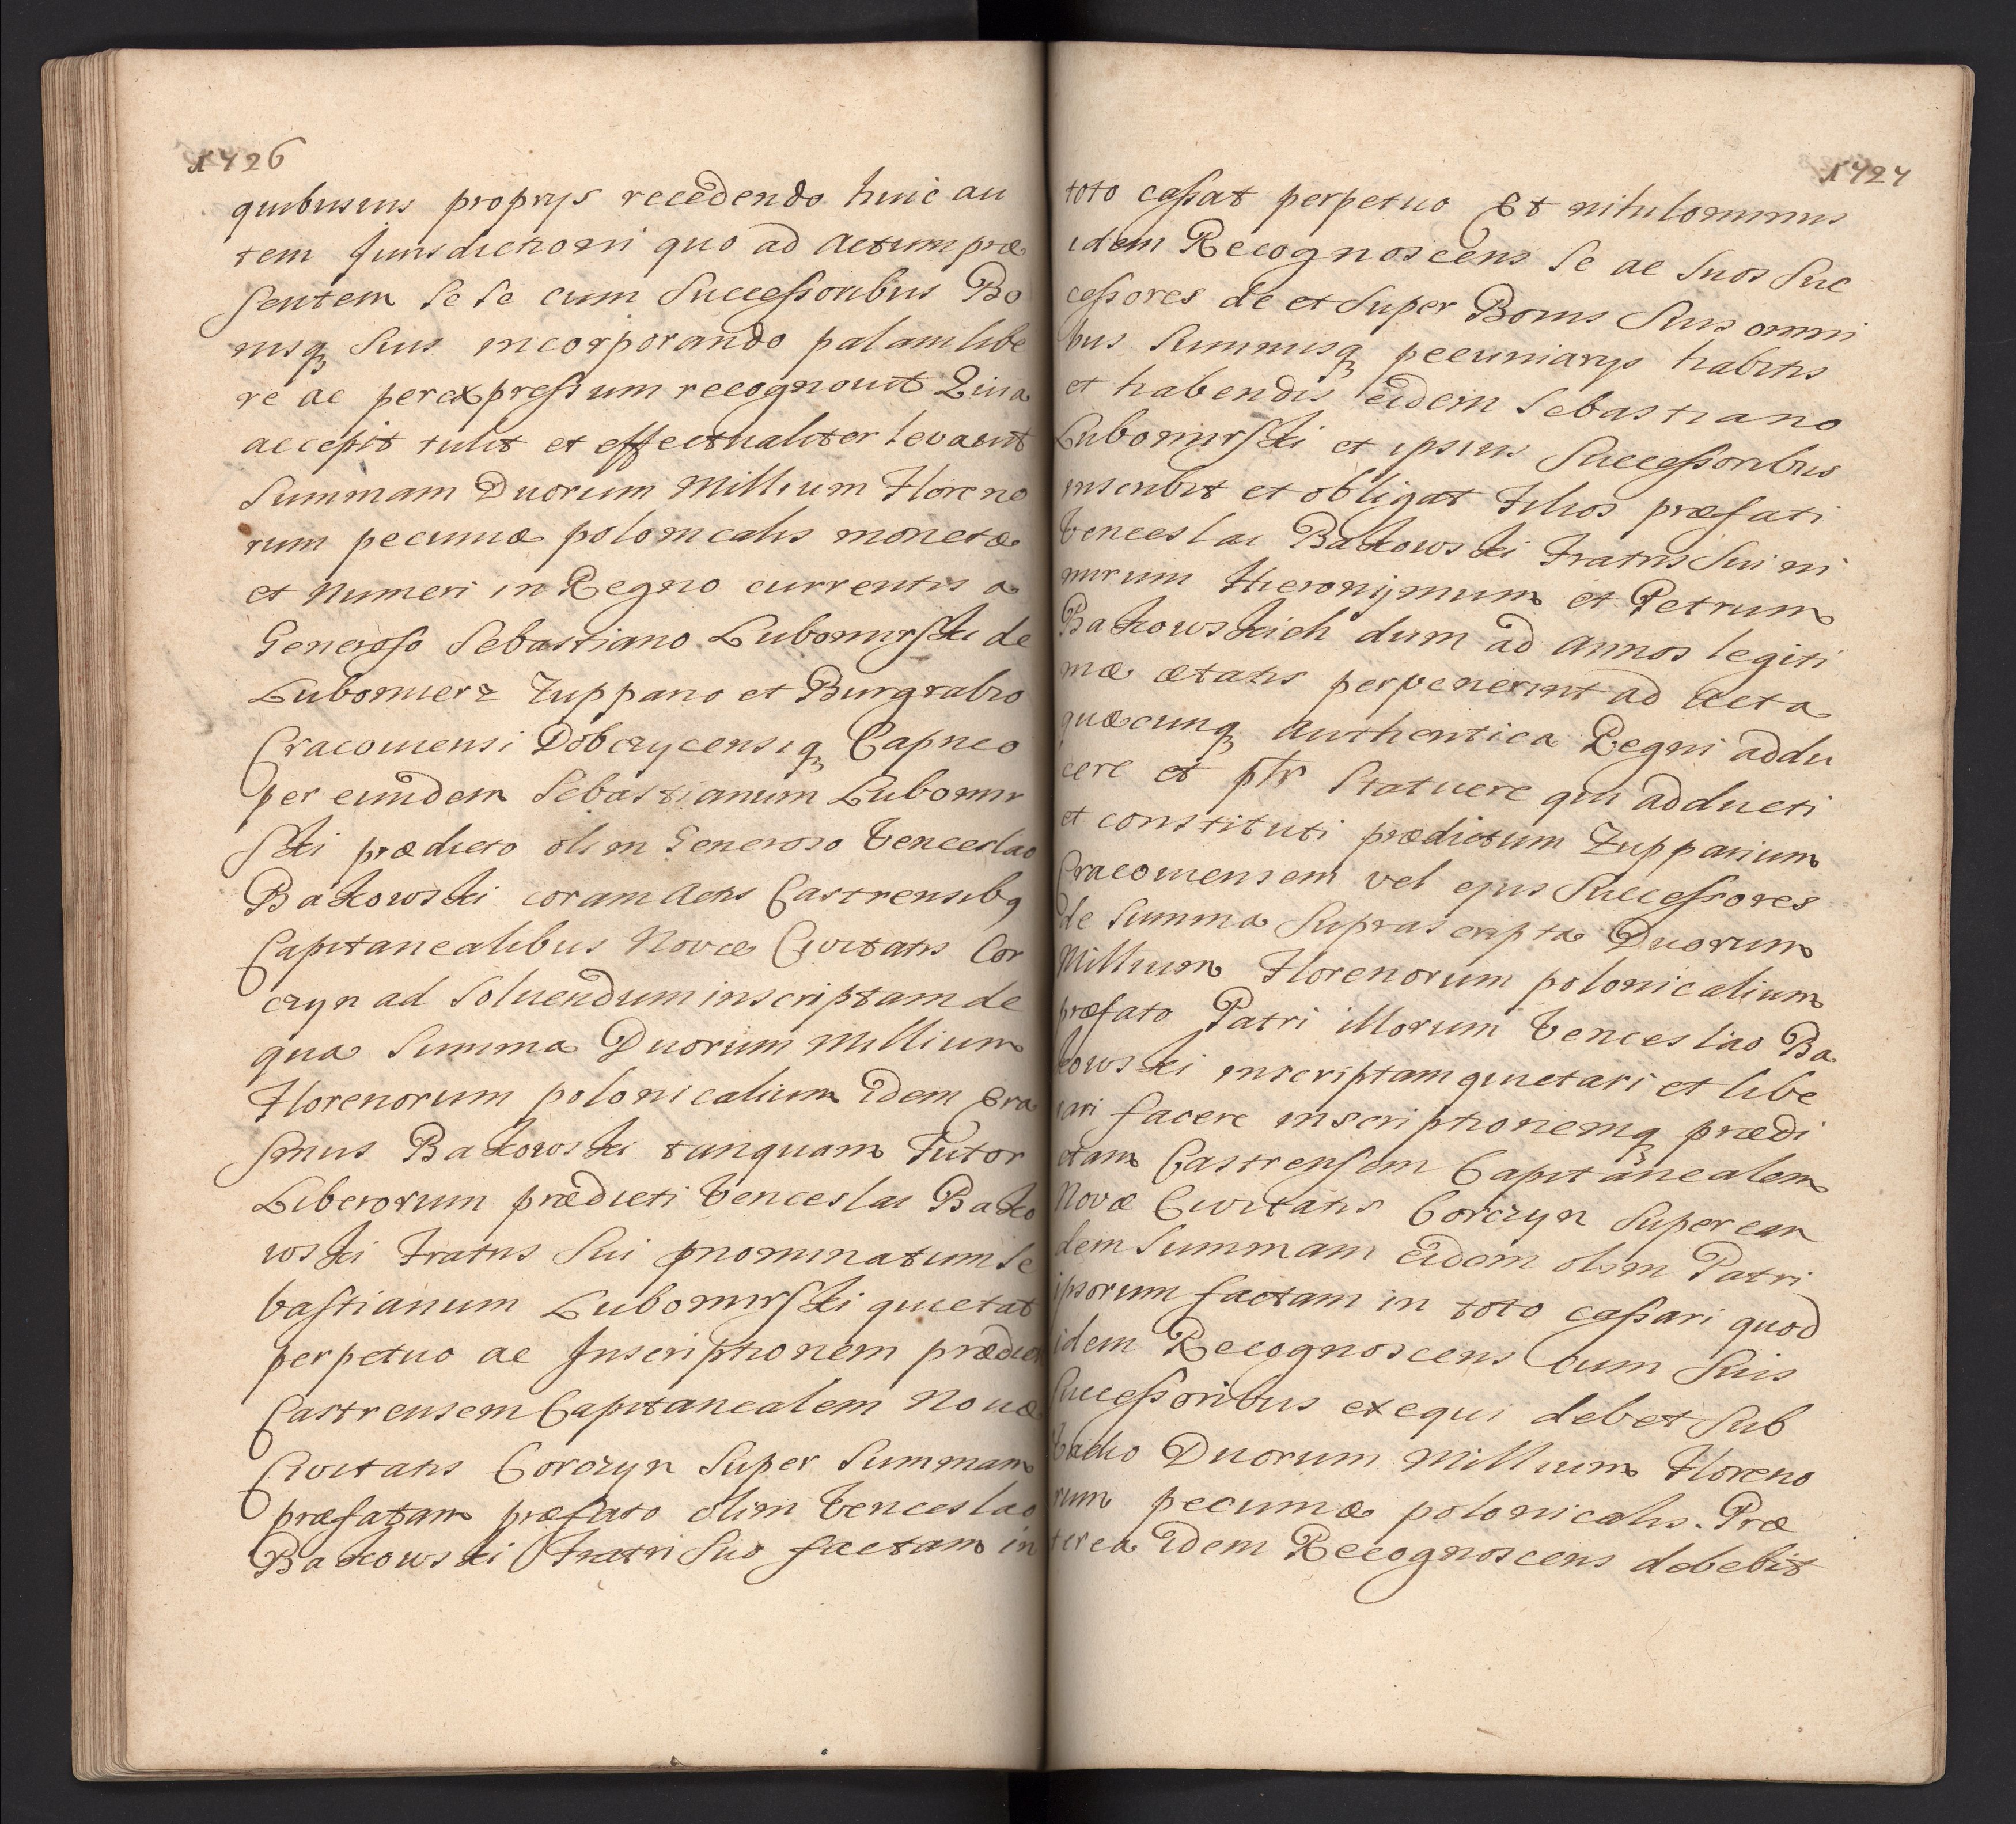 1426
quibusvis proprys recedendo huic au
tem Jurisdictioni quo ad Actum præ
sentem se se cum Successoribus Bo
nisq suis incorporando palam libe
re ac per expressum recognovit Quia
accepit tulit et effectualiter levavit
Summam Duorum Millium Floreno
rum pecuniæ polonicalis monetæ
et Numeri in Regno currentis a
Generoso Sebastiano Lubomirski de
Lubomierz Zuppario et Burgrabio
Cracoviensi Dobczycensiq Capneo
per eundem Sebastianum Lubomir
ski prædicto olim Generoso Venceslao
Bakowski coram Actis Castrensibq
Capitanealibus Novæ Civitatis Cor
czyn ad Solvendum inscriptam de
qua Summa Duorum Millium
Florenorum polonicalium Idem Era
smus Bakowski tanquam Tutor
Liberorum prædicti Venceslai Bako
wski Fratris Sui pnominatum Se
bastianum Lubomirski quietat
perpetuo ac Inscriptionem prædict
Castrensem Capitanealem Novæ
Civitatis Corczyn Super Summam
præfatam præfato olim Venceslao
Bakowski Fratri Suo factam in
1427
toto cassat perpetuo Et nihilominus
idem Recognoscens Se ac Suos Suc
cessores de et Super Bonis Suis omni
bus Summisq pecuniarys habitis
et habendis eidem Sebastiano
Lubomirski et ipsius Successoribus
inscribit et obligat Filios præfati
Venceslai Bakowski Fratris Sui ni
mirum Hieronymum et Petrum
Bakowskich dum ad Annos legiti
mæ ætatis pervenerint ad Acta
quæcunq Authentica Regni addu
cere et ptr Statuere qui adducti
et constituti prædictum Zupparium
Cracoviensem vel ejus Successores
de Summa Suprascripta Duorum
Millium Florenorum polonicalium
præfato Patri illorum Venceslao Ba
kowski inscriptam quietari et libe
rari facere inscriptionemq prædi
ctam Castrensem Capitanealem
Novæ Civitatis Corczyn Super ean
dem Summam eidem olim Patri
ipsorum factam in toto cassari quod
idem Recognoscens cum Suis
Successoribus exequi debet Sub
Vadio Duorum Millium Floreno
rum pecuniæ polonicalis. Præ
terea idem Recognoscens debebit